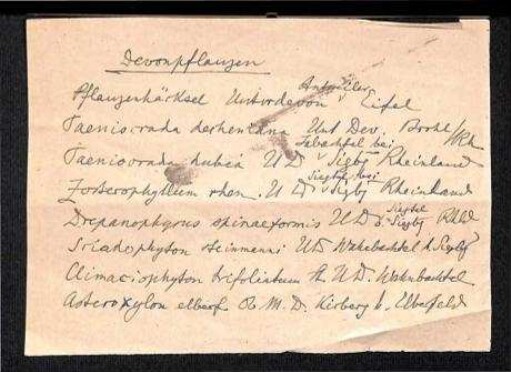 Devonpflanzen
Pflanzenhäcksel Unterdevon Antweiler Eifel
Taeniocrada decheniana Unt Dev. Brohl /Rh
Taeniocrada dubia U D bei Siegbg Rheinland
Zosterophyllum rhen. U D Siegtal bei Siegbg Rheinland
Drepanophycus spinaeformis U D Siegtal b. Siegbg Rhld
Sciadophyton steinmanni UD Wahnbachtal b Siegbg
Climaciophyton trifoliatum U D. Wahnbachtal
Asteroxylon elberf. Ob M. D. Kirberg b. Elberfeld